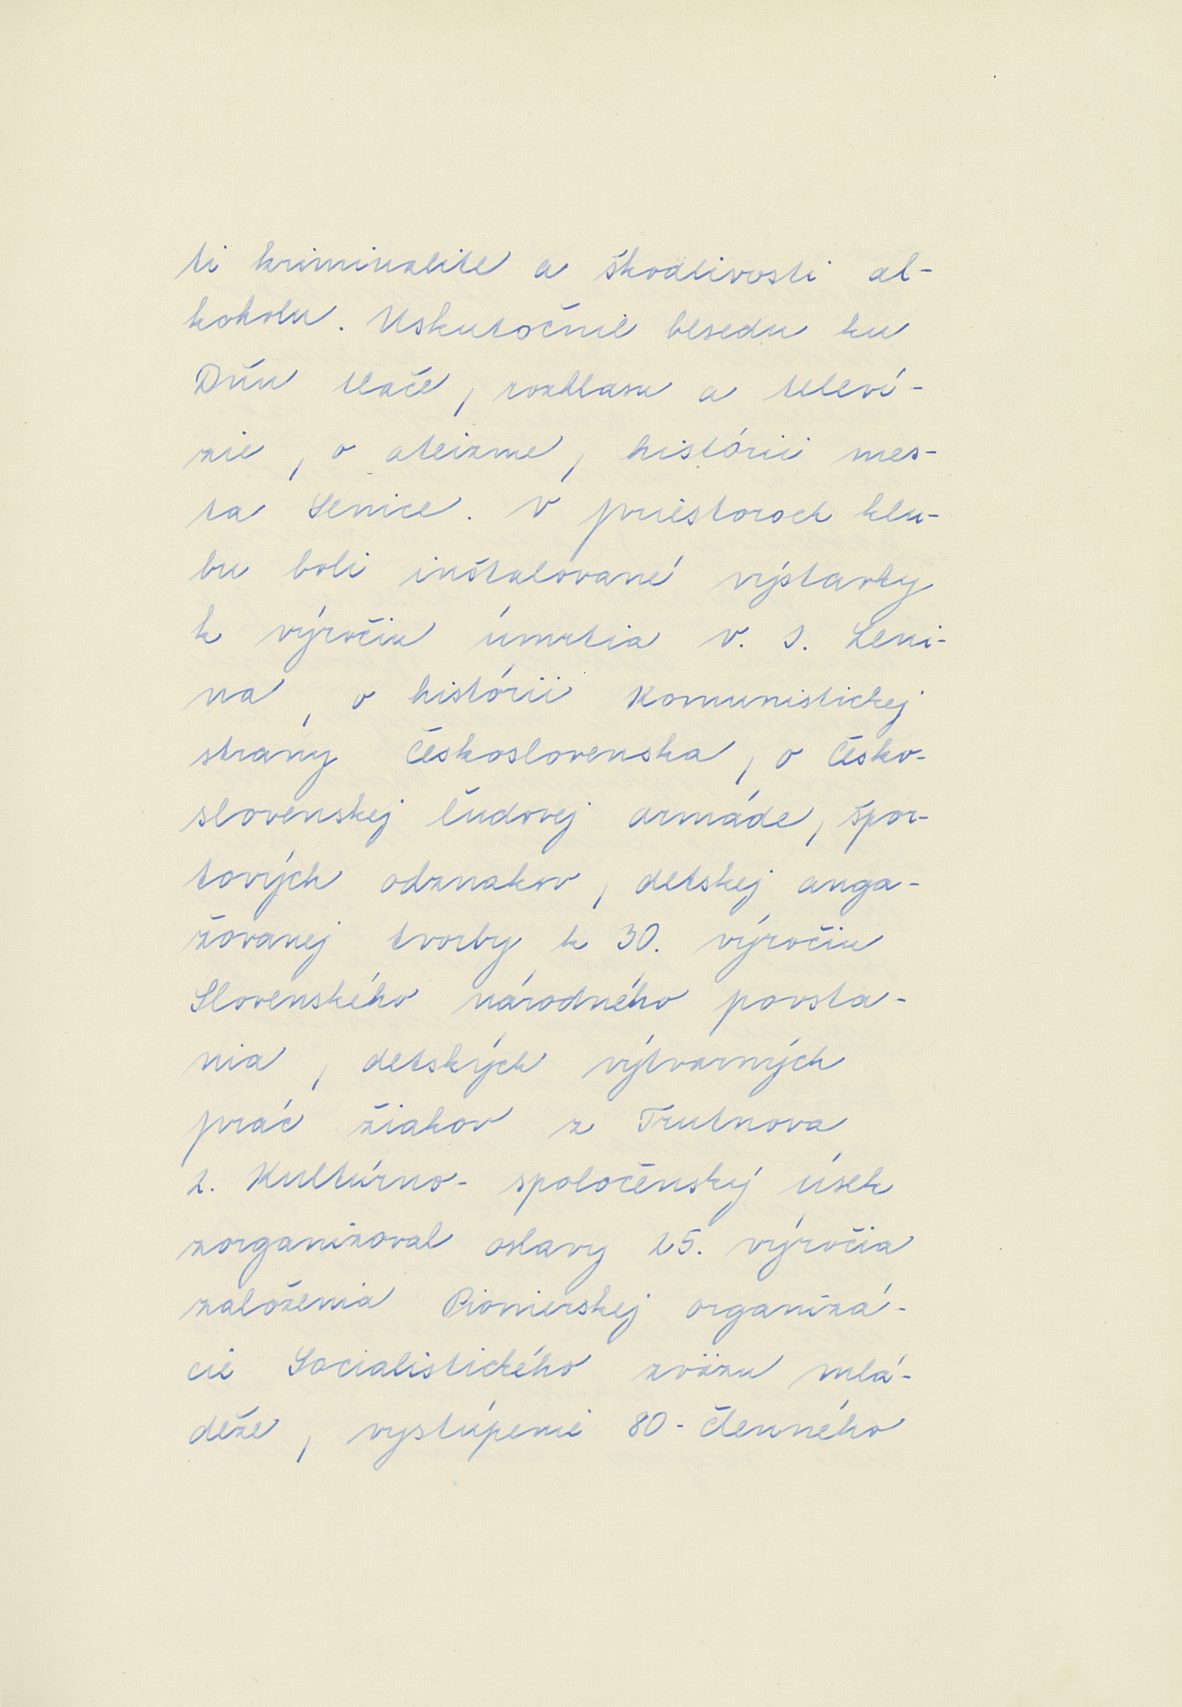 ti kriminalite a škodlivosti al-
koholu. Uskutočnil besedu ku
Dňu tlače, rozhlasu a televí-
zie, o ateizme, histórii mes-
ta Senice. V priestoroch klu-
bu boli inštalované výstavky
k výročiu úmrtia V. I. Leni-
na, o histórii Komunistickej
strany Československa, o Česko-
slovenskej ľudovej armáde, špor-
tových odznakov, detskej anga-
žovanej tvorby k 30. výročiu
Slovenského národného povsta-
nia, detských výtvarných
prác žiakov z Trutnova
2. Kultúrno-spoločenský úsek
zorganizoval oslavy 25. výročia
založenia Pionierskej organizá-
cie Socialistického zväzu mlá-
deže, vystúpenie 80-členného